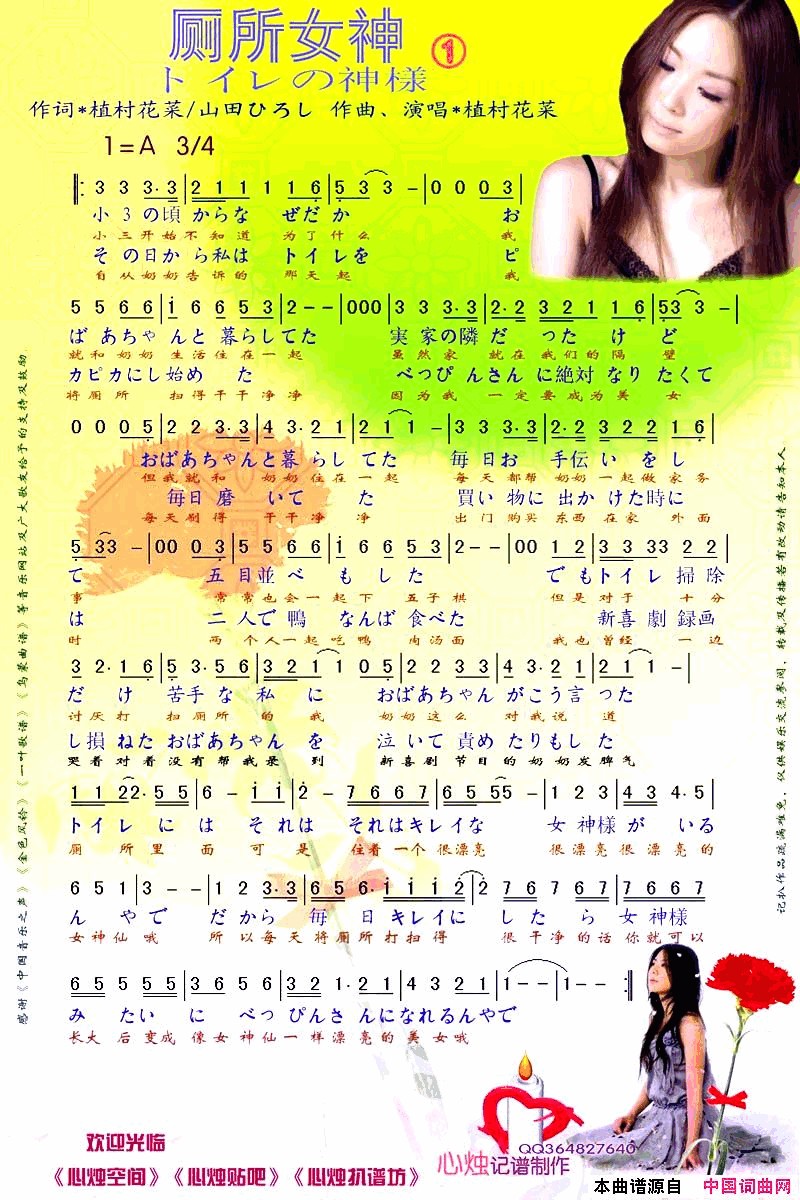 厕所女神
トイレの神様 ①
作词*植村花菜/山田ひろし 作曲、演唱*植村花菜
1=A 3/4
‖: 3 3 3· 3 | 2 1 1 1 1 6 | 5 3 3 - | 0 0 0 3 |
小 3 の頃 からな ぜだ か お
小 三 开 始 不 知 道 为 了 什 么 我
そ の日か ら私は トイレを ピ
自 从 奶 奶 告 诉 的 那 天 起 我
5 5 6 6 | i 6 6 5 3 | 2 - - | 0 0 0 | 3 3 3· 3 | 2· 2 3 2 1 1 6 | 5 3 3 - |
ば あちゃ んと 暮らしてた 実 家の隣 だ った け ど
就 和 奶 奶 生 活 住 在 一 起 虽 然 家 就 在 我 们 的 隔 壁
カピカにし始め た べっぴ んさん に絶対 なり たくて
将 厕 所 扫 得 干 干 净 净 因 为 我 一 定 要 成 为 美 女
0 0 0 5 | 2· 2 2 3 | 4 3· 2 1 | 2 1 1 - | 3 3 3· 3 | 2 3 2 2 1 6 |
おばあちゃんと暮 らし てた 毎 日お 手伝 い をし
但 我 就 和 奶 奶 住 在 一 起 每 天 都 帮 奶 奶 一 起 做 家 务
毎日 磨 いて た 買い 物に 出か けた時に
每 天 刷 得 干 干 净 净 出 门 购 买 东 西 在 家 外 面
5 3 3 - | 0 0 0 3 | 5 5 6 6 | i 6 6 5 3 | 2 - - | 0 0 1 2 | 3 3 3 3 2 2 |
て 五目並べ もした でもトイレ 掃除
事 常 常 也 会 一 起 下 五 子 棋 但 是 对 于 十 分
は 二 人で 鴨 なんば 食べた 新喜 劇 録画
时 两 个 人 一 起 吃 鸭 肉 汤 面 我 也 曾 经 一 边
3 2· 1 6 | 5 3· 5 6 | 3 2 1 1 0 5 | 2 2· 2 3 | 4 3· 2 1 | 2 1 1 - |
だ け 苦手 な 私 に おばあちゃん がこう言 った
讨 厌 打 扫 厕 所 的 我 奶 奶 这 么 对 我 说 道
し損 ねた おばあちゃん を 泣 いて 責め たりもした
哭 着 对 着 没 有 帮 我 录 到 新 喜 剧 节 目 的 奶 奶 发 脾 气
1 1 1 2 2· 5 | 5 5 5 | 6 - i | i - 2 | 7 6 6 7 | 6 5 5 5 - | 1 2 3 | 4 3 4· 5 |
トイレ には それは それはキレイな 女 神様 が いる
厕 所 里 面 可 是 住 着 一 个 很 漂 亮 很 漂 亮 很 漂 亮 的
6 5 1 | 3 - - | 1 2 3· 3 | 6 6 5 6· i | i i 2 | 2 7 6 7 6 7 | 6 7 6 7 |
ん やで だ から 毎 日 キレイに した ら 女 神様
女 神 仙 哦 所 以 每 天 将 厕 所 打 扫 得 很 干 净 的 话 你 就 可 以
6 5 5 5 | 1 2 3 | 4 3 4 5 | 6 5 6· 5 | 3 2 1· 1 | 2 1· 1 | 4 3 2 1 | 1 - - | 1 - - :‖
み たいに べっ ぴんさ んになれるんやで
长大 后 变成 像 女 神 仙 一 样 漂 亮 的 美 女 哦
感谢《中国音乐之声》《金色风铃》《一叶歌谱》《乌蒙曲谱》等音乐网站及广大歌友给予的支持及鼓励
记扒作品疏漏难免，仅供娱乐交流参阅，转载及传播若有改动请告知本人。
欢迎光临
《心烛空间》《心烛贴吧》《心烛扒谱坊》
QQ364827640
心烛记谱制作
本曲谱源自 中国词曲网